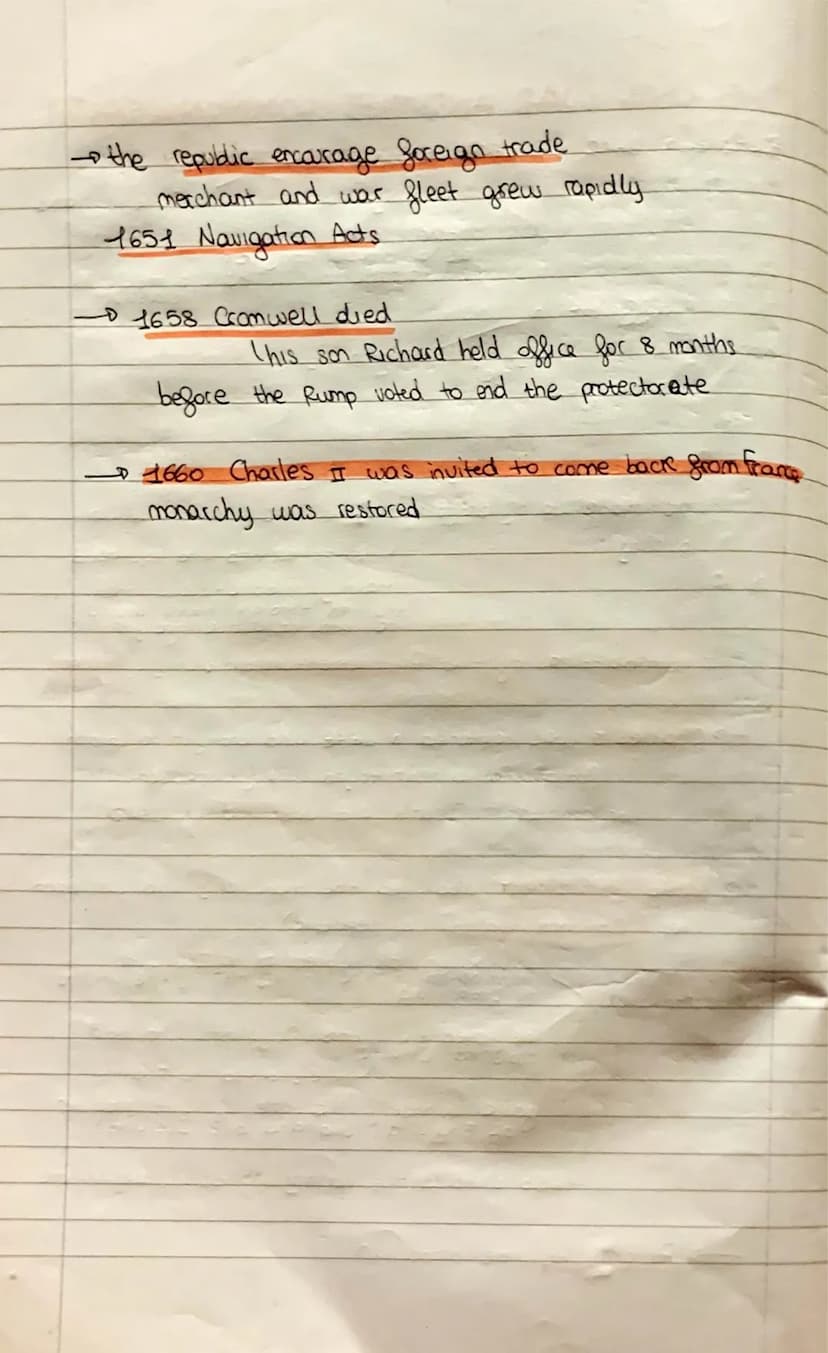 → the republic encurage foreign trade
merchant and war fleet grew rapidly
1651 Navigation Acts
→ 1658 Cromwell died
his son Richard held office for 8 months
before the Rump voted to end the protectorate
→ 1660 Charles II was invited to come back from France
monarchy was restored